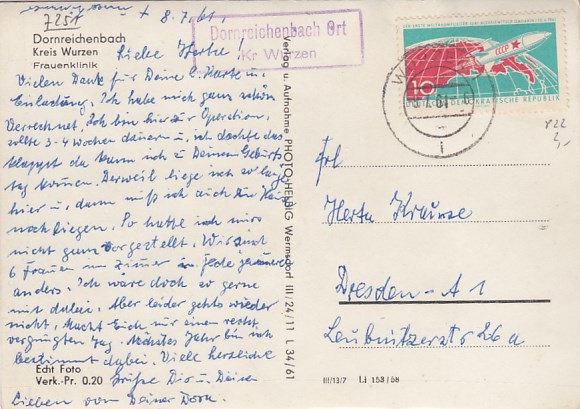 7251
8. 7. 61.
Dornreichenbach
Kreis Wurzen
Frauenklinik
Dornreichenbach Ort
Kr Wurzen
Liebe Herta!
Vielen Dank für Deine L. Karte u.
Einladung. Ich habe mich ganz schön
verrechnet. Ich bin hier zur Operation,
sollte 3-4 Wochen dauern u. ich dachte das
klappt da kann ich z. Deinem Geburts
tag kommen. Derweil liege ich so lange
hier u. dann muß ich auch zu Haus
noch liegen. So hatte ich mirs
nicht ganz vorgestellt. Wir sind
6 Frauen im Zimmer u. Jede jammert
anders. Ich wäre doch so gerne
mit dabei. Aber leider gehts wieder
nicht. Macht Euch nur einen recht
vergnügten Tag. Nächstes Jahr bin ich
bestimmt dabei. Viele herzliche
Grüße Dir u. Deinen
Lieben von Deiner Dora.
Echt Foto
Verk.-Pr. 0.20
Verlag u. Aufnahme PHOTO-HELBIG Wermsdorf III/24/11 L 34/61
CCCP
10
DEMOKRATISCHE REPUBLIK
Frl
Herta Krause
Dresden-A 1
Leubnitzerstr 26a
III/13/7 Li 153/58